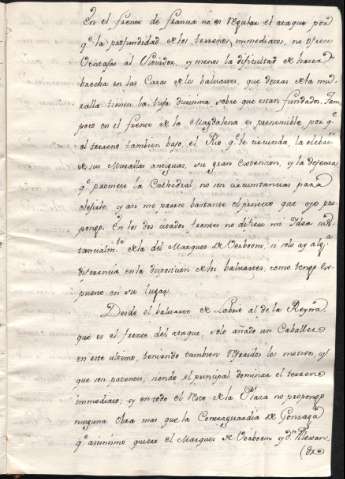 En el frente de Francia no es regular el ataque por
q.e la profundidad de los terrenos immediatos, no ofrece
ventajas al Sitiador, y menos la dificultad de hacer
brecha en las Caras de los baluartes, que detras de la mu
ralla tienen la tufa durissima sobre que estan fundados. Tam
poco en el frente de la Magdalena es presumible, por q.e
el terreno tambien bajo, el Rio q.e le circunda, la
de sus Murallas antiguas, su gran extencion, y la defensa
q.e promete la Cathedral no son circunstancias para
elejirle, y asi me parece bastante el proiecto que oy pro
pongo. En los dos citados frentes no difiere mi Idea subs
tancialm.te de la del Marques de Verboom, si solo ay alg.a
diferencia en la disposicion de los baluartes, como tengo ex
puesto en su lugar.
Desde el baluarte de al de la Reyna
que es el frente del ataque, solo añado un Caballero
en este ultimo, teniendo tambien los mesmos, y
que me parecen, siendo el principal dominar el terreno
immediato; y en todo el resto de la Plaza no propongo
ninguna Obra mas que la Contraguardia de Gonzaga
q.e assimismo quiere el Marques de Verboom y